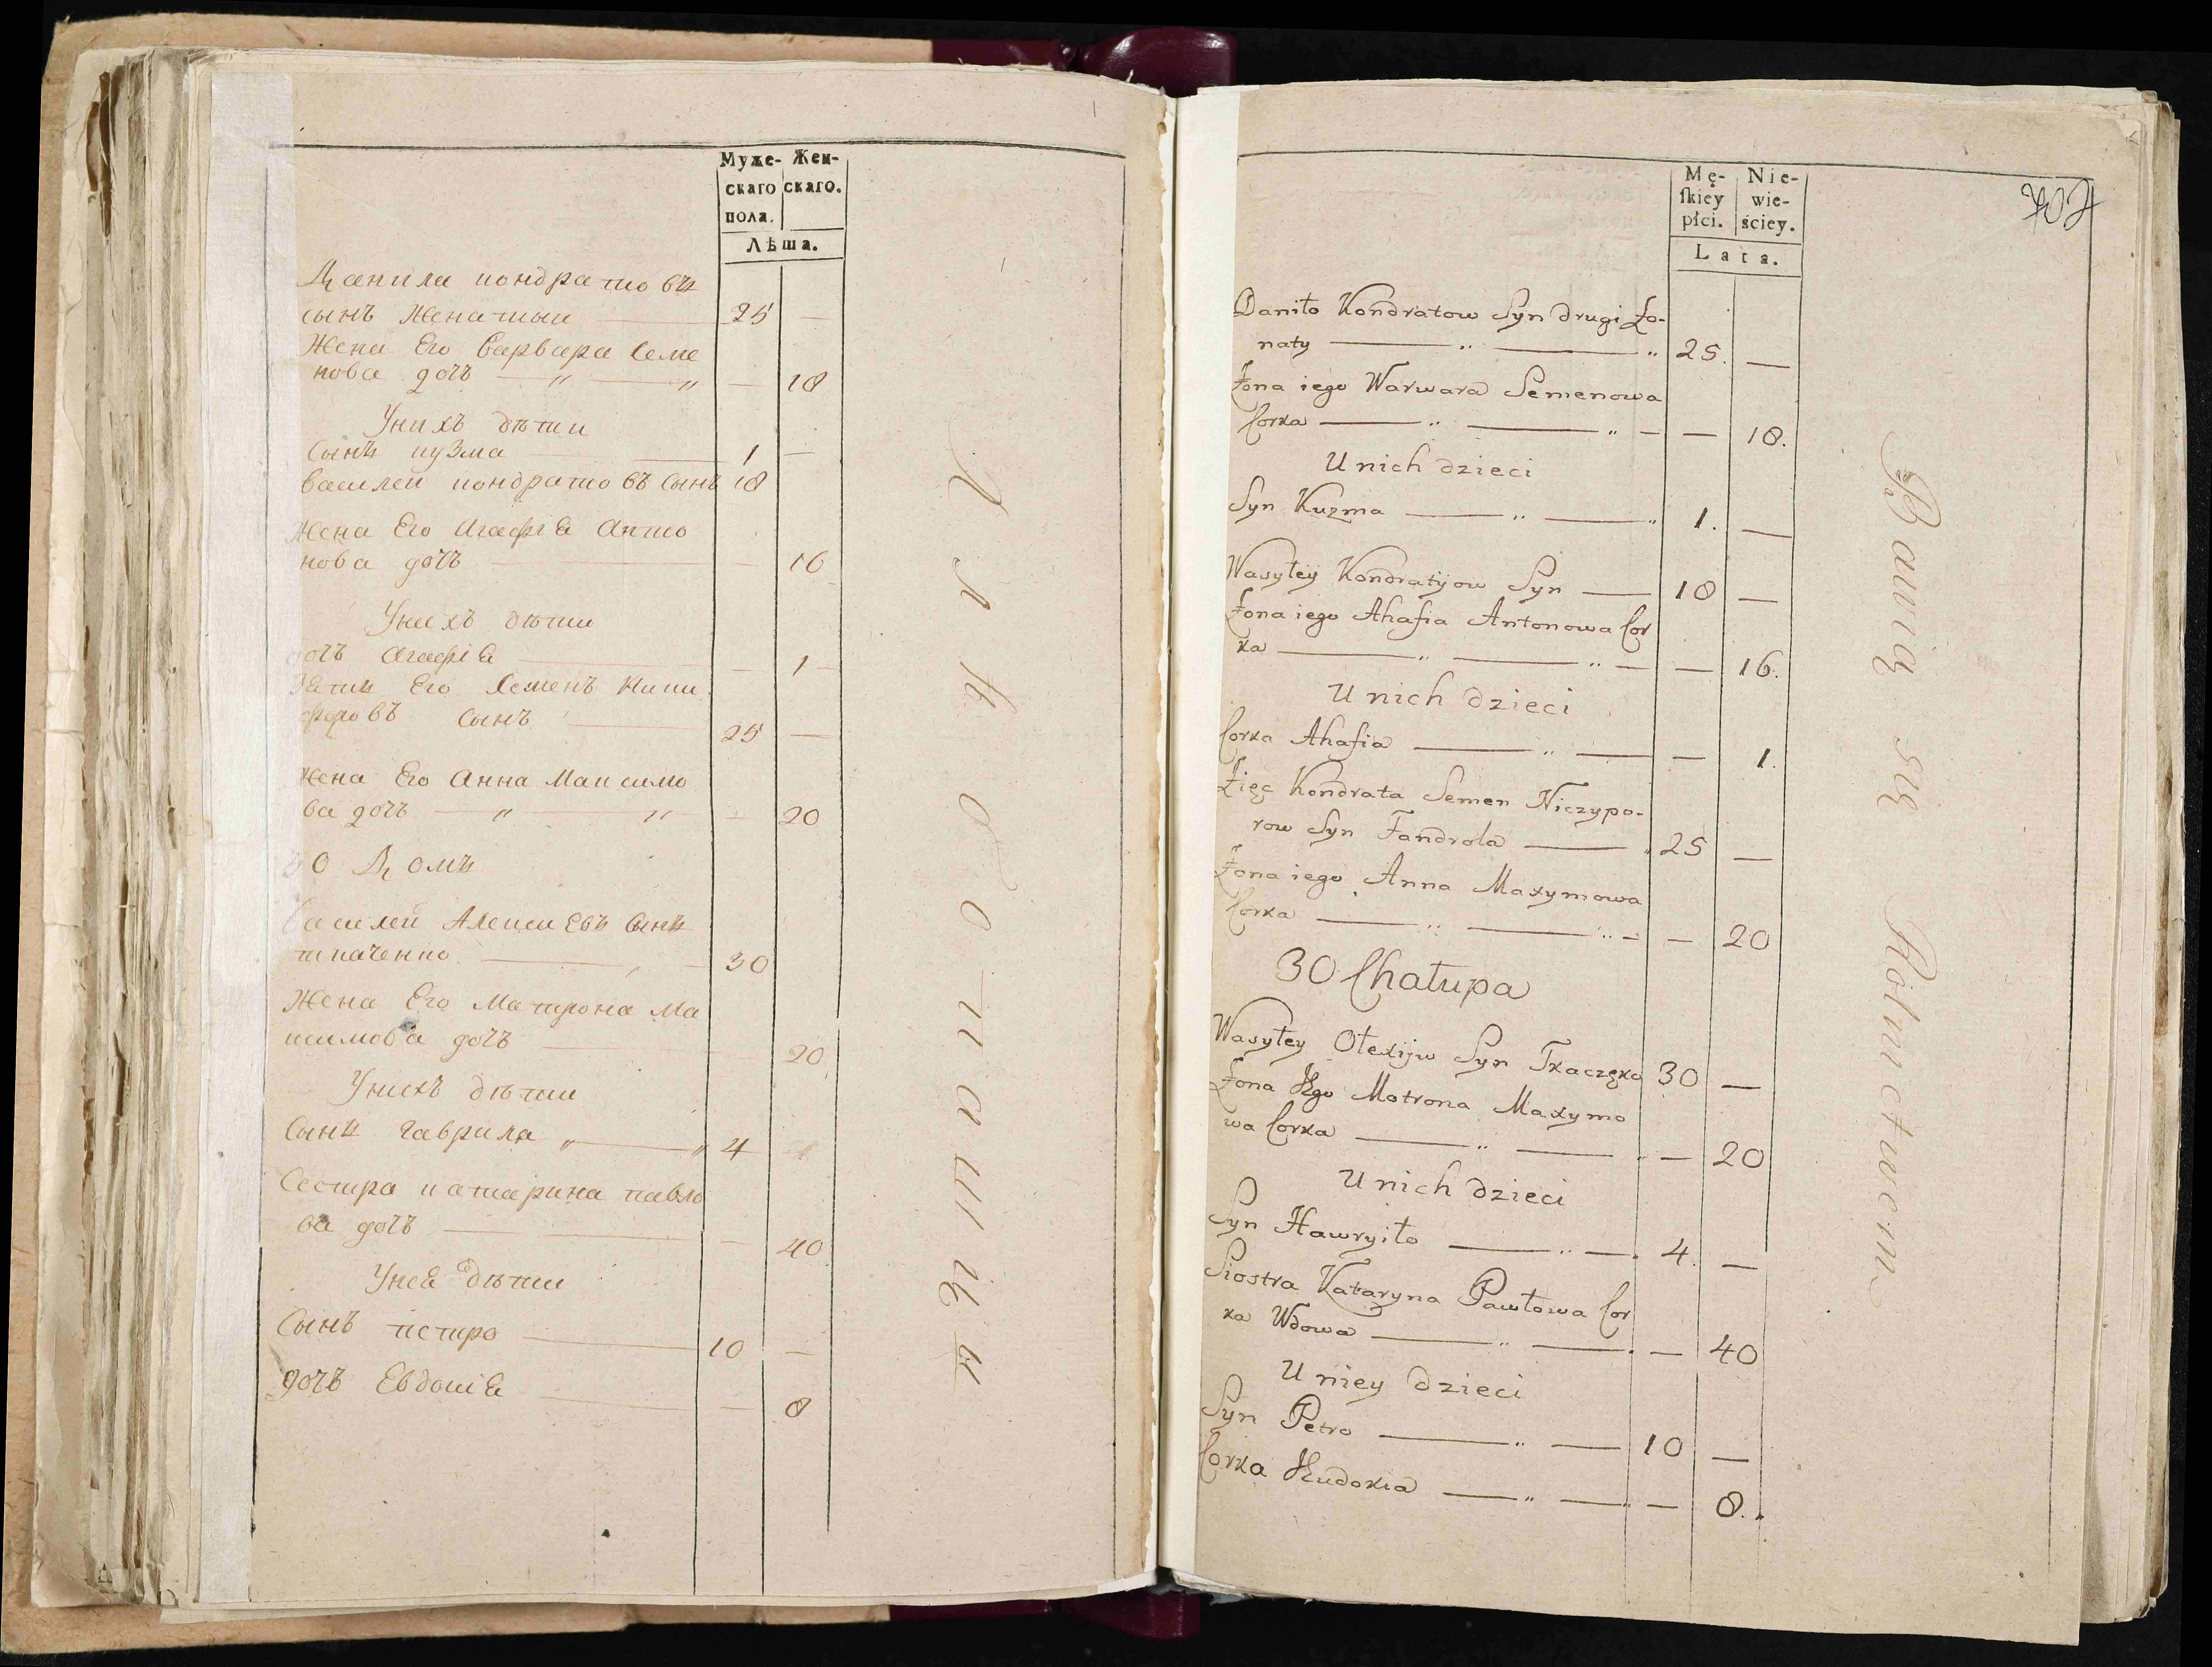 Муже- Жен-
скаго скаго.
пола.
Лѣта.
Данила кондратовъ
сынъ женатыи 25 —
Жена Его Варвара Семе
нова дочъ — " — " — 18
Унихъ дѣти
Сынъ кузма 1 —
василеи кондратовъ Сынъ 18
жена Его Агафiя Анто
нова дочъ — 16
Унихъ дѣти
дочъ Агафiя — 1 —
зять Его Семенъ Ничи
форовъ Сынъ 25 —
жена Его Анна Максимо
ва дочъ — " — " — 20
30 Домъ
Василей Алексиевъ Сынъ
ткаченко 30
Жена Его Матрона Ма
ксимова дочъ — 20
Унихъ дѣти
Сынъ гаврила " — " 4 —
Сестра катарина павло
ва дочъ — 40
Унея дѣти
Сынъ петро 10 —
дочъ Евдокiя — 8
Хлѣбопашцы
Mę- Nie-
skiey wie-
płci. ściey.
Lata.
Daniło Kondratow Syn drugi Żo-
naty — " — " 25. —
Żona iego Warwara Semenowa
Corka — " — " — — 18.
U nich dzieci
Syn Kuzma — " — " 1. —
Wasyley Kondratijow Syn — 18 —
Żona iego Ahafia Antonowa Cor
ka — " — " — — 16.
U nich dzieci
Corka Ahafia — " — — 1.
Zięć Kondrata Semen Niczypo-
row Syn Fandrola — " 25 —
Żona iego Anna Maxymowa
Corka — " — " — — 20
30 Chałupa
Wasyley Olexijw Syn Tkaczęko 30 —
Żona Jego Motrona Maxymo
wa Corka — " — " — 20
U nich dzieci
Syn Hawryiło — " — " 4. —
Siostra Kataryna Pawłowa Cor
ka Wdowa — " — " — 40
U niey dzieci
Syn Petro — " — 10 —
Corka Eudokia — " — " — 8.
Bawią się Rolnictwem